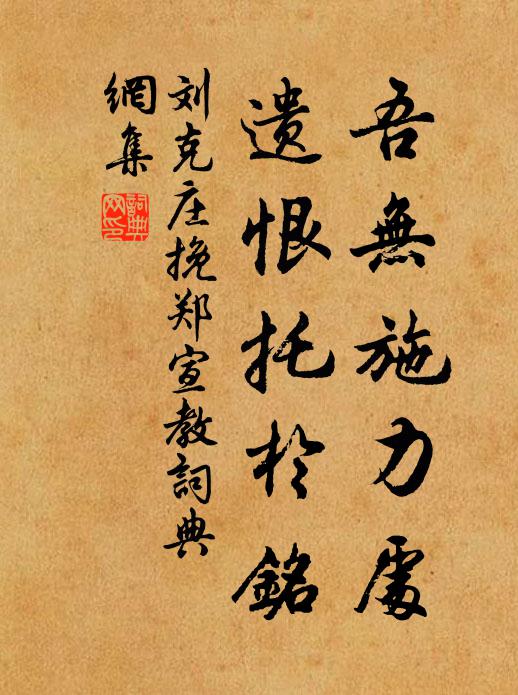 吾無施力處
遗恨托於銘
刘克庄挽郑宣教詞典
網集
詞典
网印